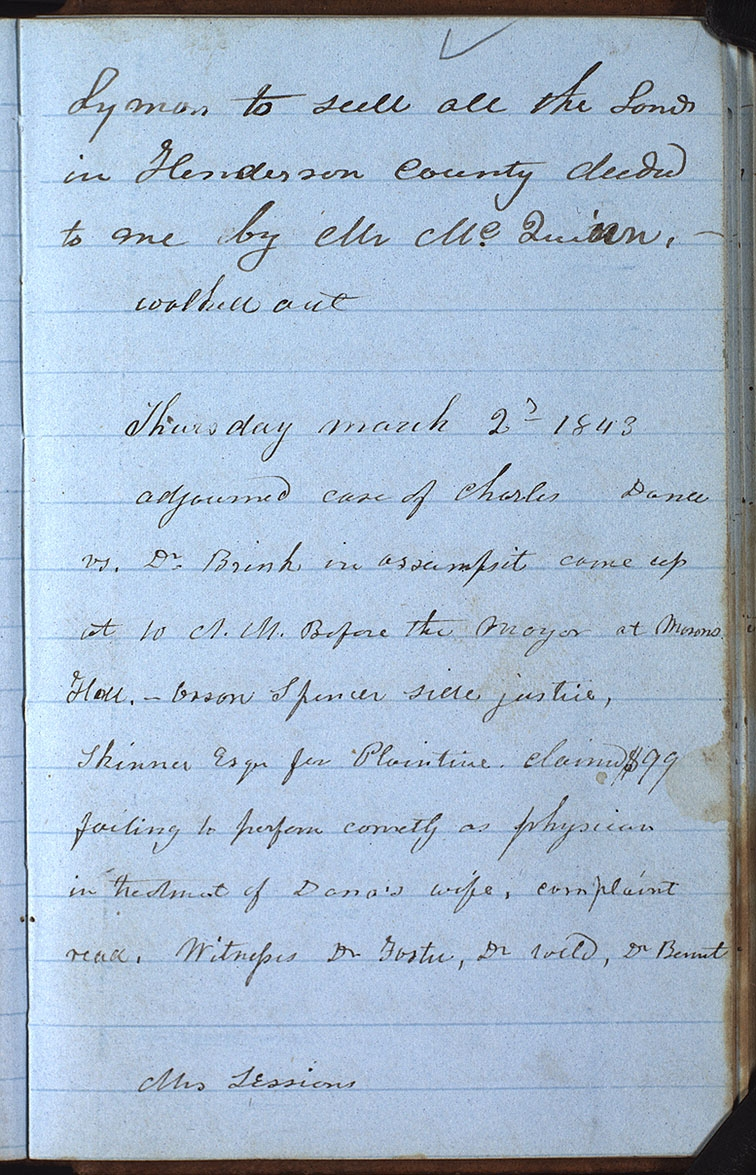 Lyman to sell all the Lands
in Henderson County deeded
to me by Mr Mc Quinn. —
walked out
Thursday march 2d 1843
adjourned case of Charles Dana
vs. Dr Brink in assumpsit came up
at 10 A. M. Before the Mayor at Masons
Hall. — Orson Spencer side justice,
Skinner Esqr for Plaintive. claimd $99
failing to perform correctly as physician
in treatment of Dana's wife, complaint
read. Witnesses Dr Foster, Dr Weld, Dr Bennet
Mrs Sessions